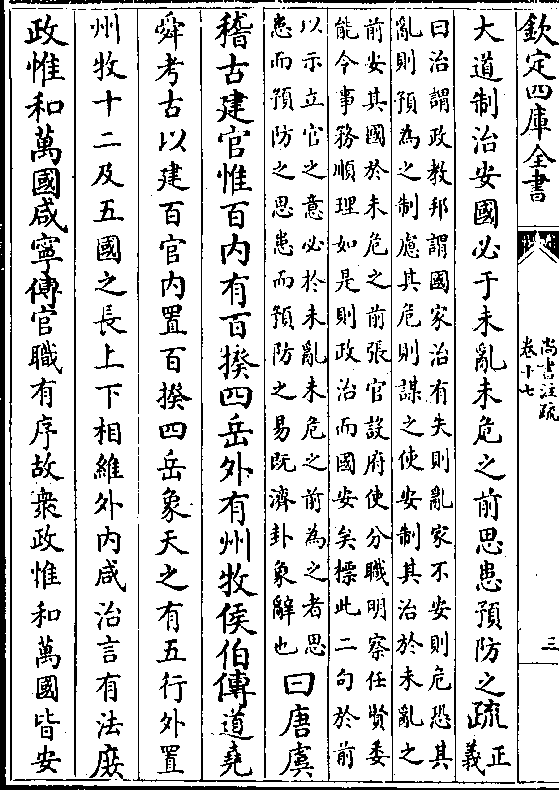 欽定四庫全書
尚書注疏
卷十七
三
大道制治安國必于未亂未危之前思患預防之疏正
義
曰治謂政教邦謂國家治有失則亂家不安則危恐其
亂則預為之制慮其危則謀之使安制其治於未亂之
前安其國於未危之前張官設府使分職明察任賢委
能令事務順理如是則政治而國安矣標此二句於前
以示立官之意必於未亂未危之前為之者思
患而預防之思患而預防之易既濟卦象辭也
曰唐虞
稽古建官惟百內有百揆四岳外有州牧侯伯傳道堯
舜考古以建百官內置百揆四岳象天之有五行外置
州牧十二及五國之長上下相維外內咸治言有法庶
政惟和萬國咸寧傳官職有序故衆政惟和萬國皆安